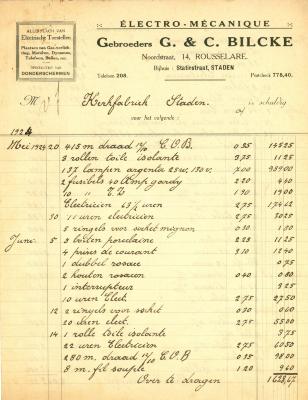 ÉLECTRO-MÉCANIQUE
ALLERPLACH VAN
Electrische Toestellen
Plaatsen van Gas-verlichting, Motoren, Dynamos, Telefoon, Bellen, enz.
DONDERSCHERMEN
Gebroeders G. & C. BILCKE
Noordstraat, 14, ROUSSELARE.
Bijhuis : Statiestraat, STADEN
Telefoon 208. Postcheck 778,40.
M Kerkfabriek Staden. schuldig
voor het volgende :
1924
Mei 1924 20 415 m draad 17/10 C.O.B. 0 35 145 25
3 rollen toile isolante 3 75 11 25
137 lampen argenta 25 w, 130 v. 7 00 959 00
2 fusibels 40 amp gardy 2 20 4 40
10 1 90 19 00
Electricien 63 1/2 uren 2 75 174 62
30 11 uren electricien 2 75 30 25
5 ringels voor soket mignon 0 30 1 50
June 5 5 boîten porcelaine 2 25 11 25
4 prises de courant 3 10 12 40
1 dubbel rosace 0 75
2 houten rosacen 0 40 0 80
1 interrupteur 3 25
10 uren Elect. 2 75 27 50
12 2 ringels voor soket 0 30 0 60
20 uren elect. 2 75 55 00
14 1 rolle toile isolante 3 75
22 uren Electricien 2 75 60 50
280 m. draad 17/10 C.O.B 0 35 98 00
8 m. fil souple 1 20 9 60
Over te dragen 1628,67